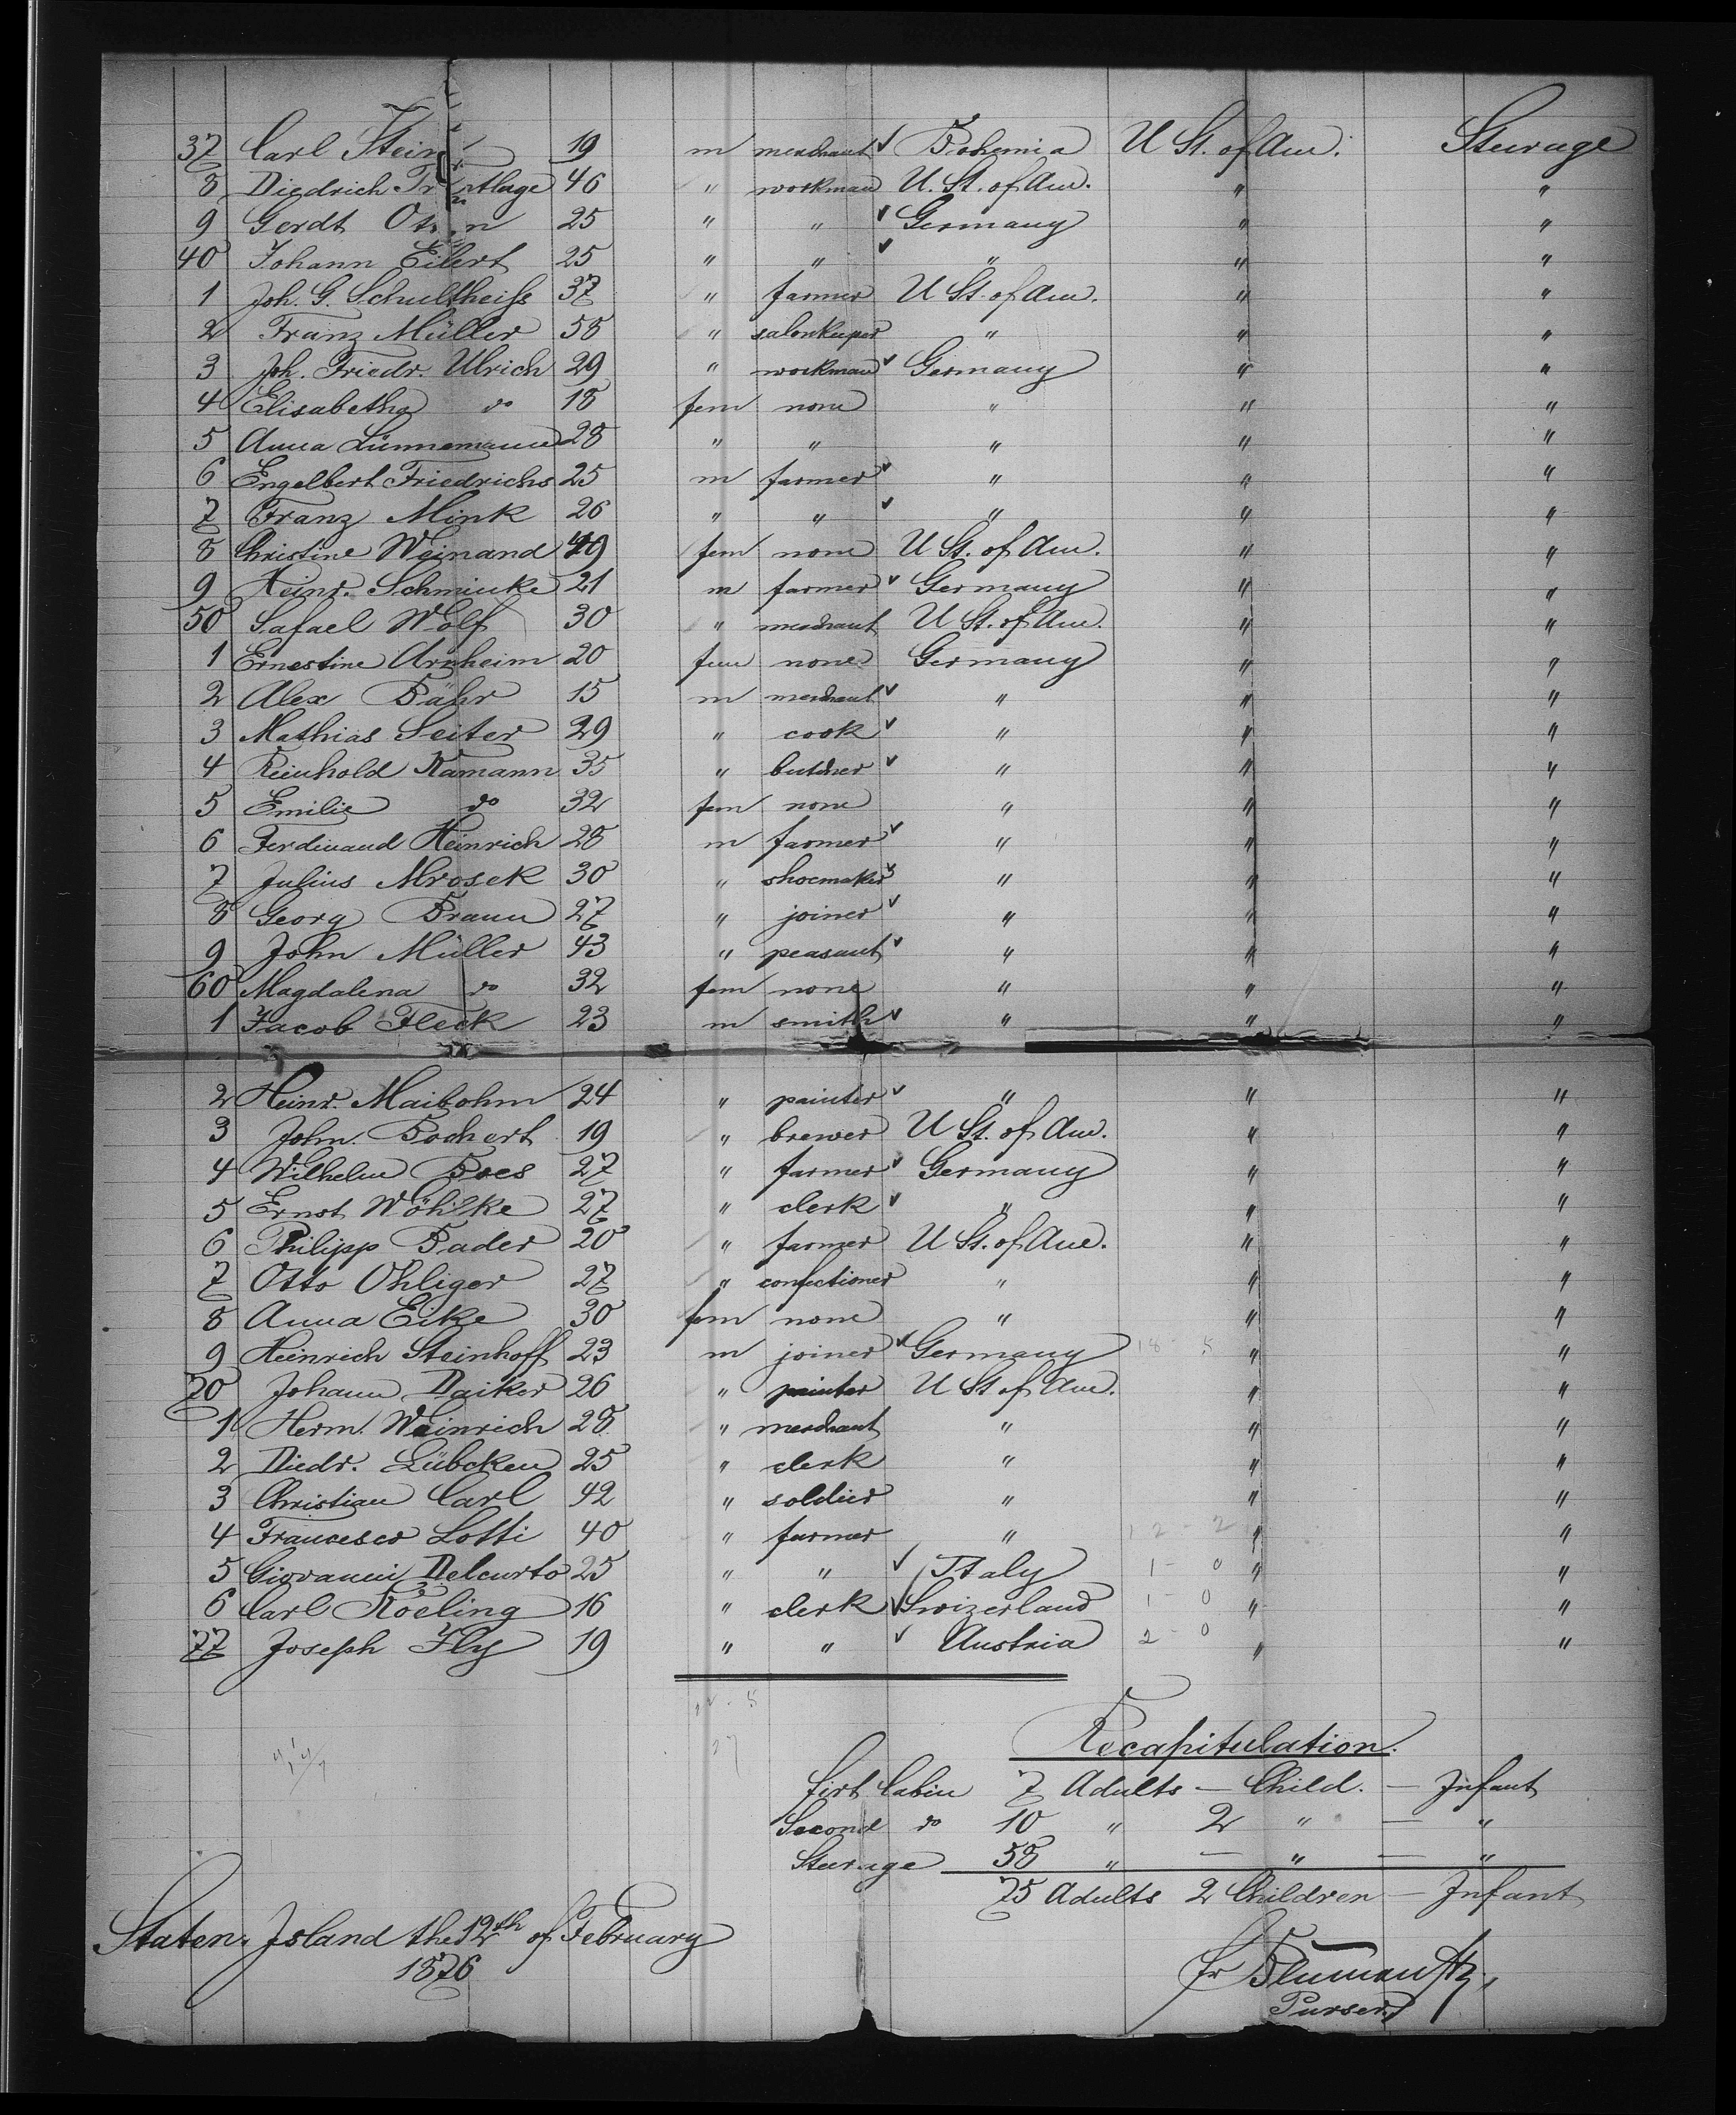 37 Carl Stein 19 m merchant ✓ Bohemia U St. of Am. Steerage
8 Diedrich 46 " workman U. St. of Am. " "
9 Gerdt 25 " " ✓ Germany " "
40 Johann Eilert 25 " " ✓ " " "
1 Joh. G. Schultheiss 37 " farmer U St. of Am. " "
2 Franz Müller 58 " salonkeeper " " "
3 Joh. Friedr. Ulrich 29 " workman ✓ Germany " "
4 Elisabetha do 18 fem none " " "
5 Anna Lünnemann 28 " " " " "
6 Engelbert Friedrichs 25 m farmer ✓ " " "
7 Franz Mink 26 " " ✓ " " "
8 Christine Weinand 49 fem none U St. of Am. " "
9 Heinr. Schminke 21 m farmer ✓ Germany " "
50 Safael Wolf 30 " merchant U St. of Am. " "
1 Ernestine Arnheim 20 fem none Germany " "
2 Alex Bähr 15 m merchant ✓ " " "
3 Mathias Seiter 29 " cook ✓ " " "
4 Reinhold Ramann 35 " butcher ✓ " " "
5 Emilie do 32 fem none " " "
6 Ferdinand Heinrich 28 m farmer ✓ " " "
7 Julius Mrosek 30 " shoemaker ✓ " " "
8 Georg Braun 27 " joiner ✓ " " "
9 John Müller 43 " peasant ✓ " " "
60 Magdalena do 32 fem none " " "
1 Jacob Fleck 23 m smith ✓ " " "
2 Heinr. Maibohm 24 " painter ✓ " " "
3 John. Bochert 19 " brewer U St. of Am. " "
4 Wilhelm Boes 27 " farmer ✓ Germany " "
5 Ernst Wöhlke 27 " clerk ✓ " " "
6 Philipp Bader 20 " farmer U St. of Am. " "
7 Otto Ohliger 27 " confectioner " " "
8 Anna Eike 30 fem none " " "
9 Heinrich Steinhoff 23 m joiner ✓ Germany 18 - 5 " "
70 Johann Daiker 26 " painter U St of Am. " "
1 Herm. Weinrich 28 " merchant " " "
2 Diedr. Lübcken 25 " clerk " " "
3 Christian Carl 42 " soldier " " "
4 Francesco Lotti 40 " farmer " 12 - 2 " "
5 Giovanni Delcurto 25 " " ✓ Italy 1 - 0 " "
6 Carl Roeling 16 " clerk ✓ Swizerland 1 - 0 " "
77 Joseph Fly 19 " " ✓ Austria 2 - 0 " "
Recapitulation.
first Cabin 7 Adults — Child. — Infant
Second do 10 " 2 " — "
Steerage 58 " — " — "
75 Adults 2 Children — Infant
Staten Island the 12th of February
1876
Purser